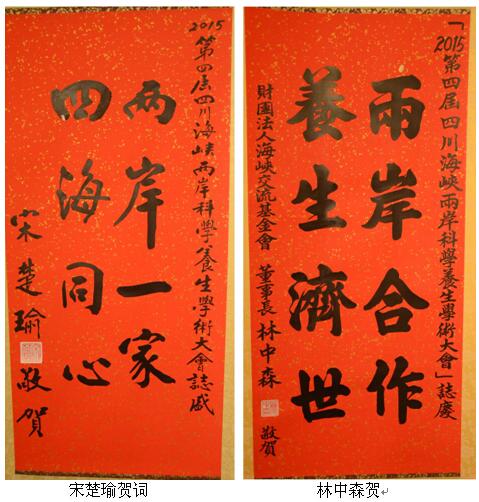 2015第四届四川海峡两岸科學養生學術大會誌盛
两岸一家
四海同心
宋楚瑜敬贺
宋楚瑜贺词
「2015第四屆四川海峽兩岸科學養生學術大會」誌慶
兩岸合作
養生濟世
財團法人海峽交流基金會 董事長 林中森 敬賀
林中森贺